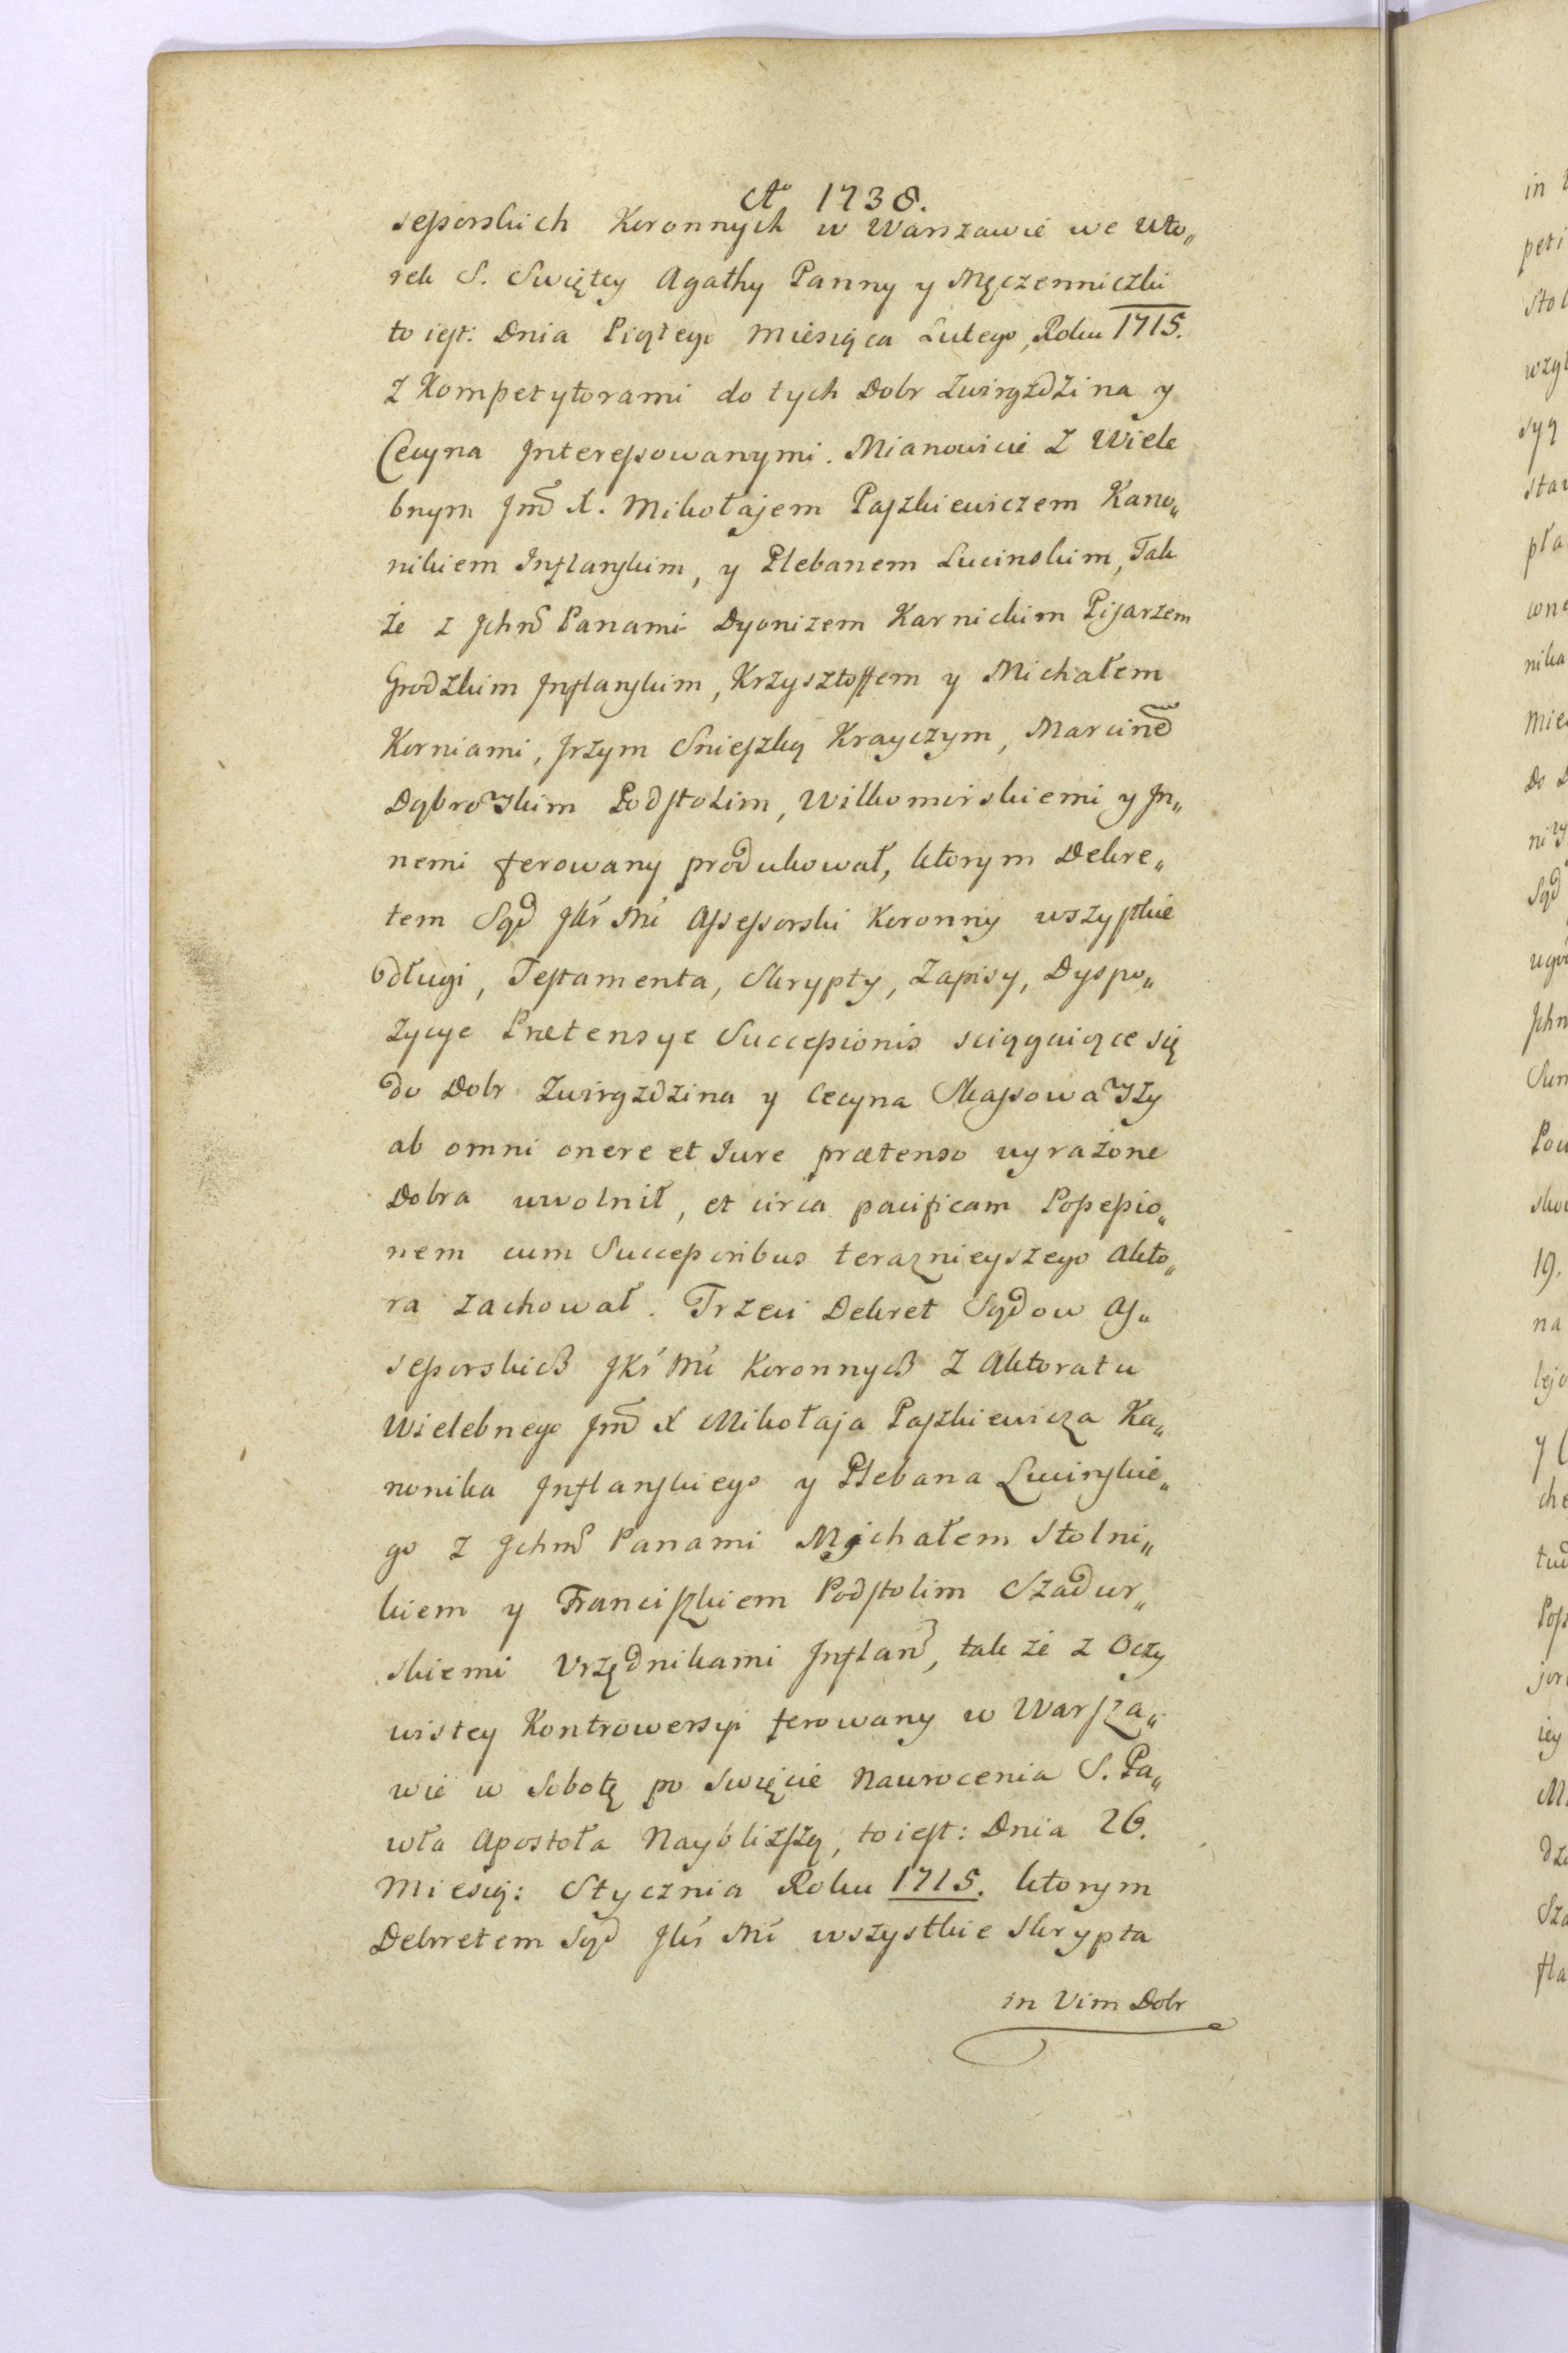 Aº 1738.
sessorskich Koronnych w Warszawie we wto„
rek S. Swiętey Agathy Panny y Męczenniczki
to iest: Dnia Piątego Miesiąca Lutego, Roku 1715.
z Kompetytorami do tych Dobr Zwirgzdzina y
Cecyna Interessowanymi. Mianowicie z Wiele
bnym Jmć X. Mikołajem Paszkiewiczem Kano„
nikiem Inflanskim, y Plebanem Lucinskim, Tak
że z Jchmć Panami Dyonizem Karnickim Pisarzem
Grodzkim Inflanskim, Krzysztoffem y Michałem
Korniami, Jrzym Snieszką Krayczym, Marcinē
Dąbrowskim Podstolim, Wilkomirskiemi y In„
nemi ferowany produkował, ktorym Dekre„
tem Sąd JKr Mci Assessorski Koronny wszystkie
Odługi, Testamenta, Skrypty, Zapisy, Dyspo„
zycye Prætensye Successionis sciągaiące się
do Dobr Zwirgzdzina y Cecyna Skassowawszy
ab omni onere et Jure prætenso wyrażone
Dobra uwolnił, et circa pacificam Possessio„
nem cum Successoribus teraznieyszego Akto„
ra zachował. Trzeci Dekret Sądow As„
sessorskich JKr Mci Koronnych z Aktoratu
Wielebnego Jmć X Mikołaja Paszkiewicza Ka„
nonika Inflanskiego y Plebana Lucinskie„
go z Jchmć Panami Michałem Stolni„
kiem y Franciszkiem Podstolim Szadur„
skiemi Vrzędnikami Inflan, tak że z Oczy
wistey Kontrowersyi ferowany w Warsza„
wie w Sobotę po Swięcie Nawrocenia S. Pa„
wła Apostoła Nayblizszą, to iest: Dnia 26.
Miesią: Stycznia Roku 1715. ktorym
Dekretem Sąd JKr Mci wszystkie Skrypta
in Vim Dobr